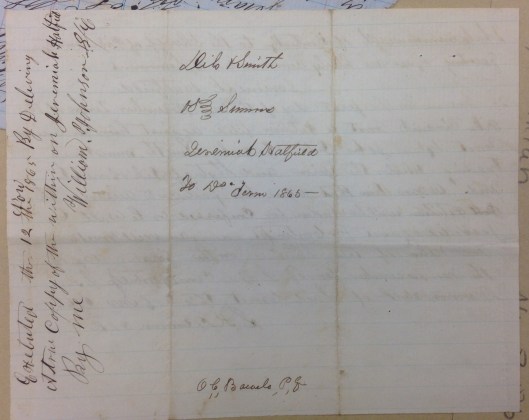 Smith
Summons
Jeremiah Hatfield
To Dec Term 1865 —
O. C. P. Q.
Executed the 12 Nov 1865 By Delivering
A True Coppy of the within on Jeremiah Hatfield
By me William Johnson